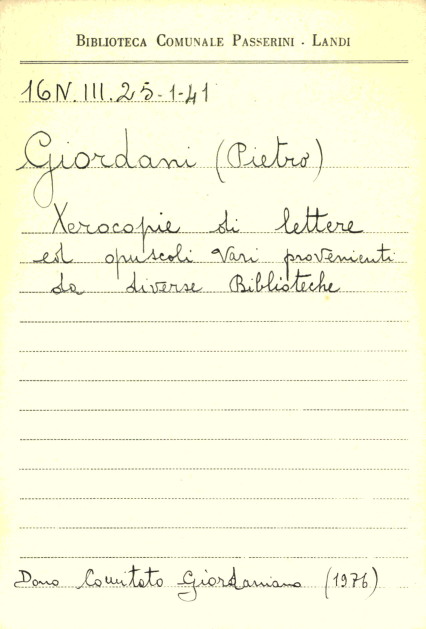 BIBLIOTECA COMUNALE PASSERINI - LANDI
16N.III.25-1-41
Giordani (Pietro)
Xerocopie di lettere
ed opuscoli vari provenienti
da diverse Biblioteche
Dono Comitato Giordaniano (1976)